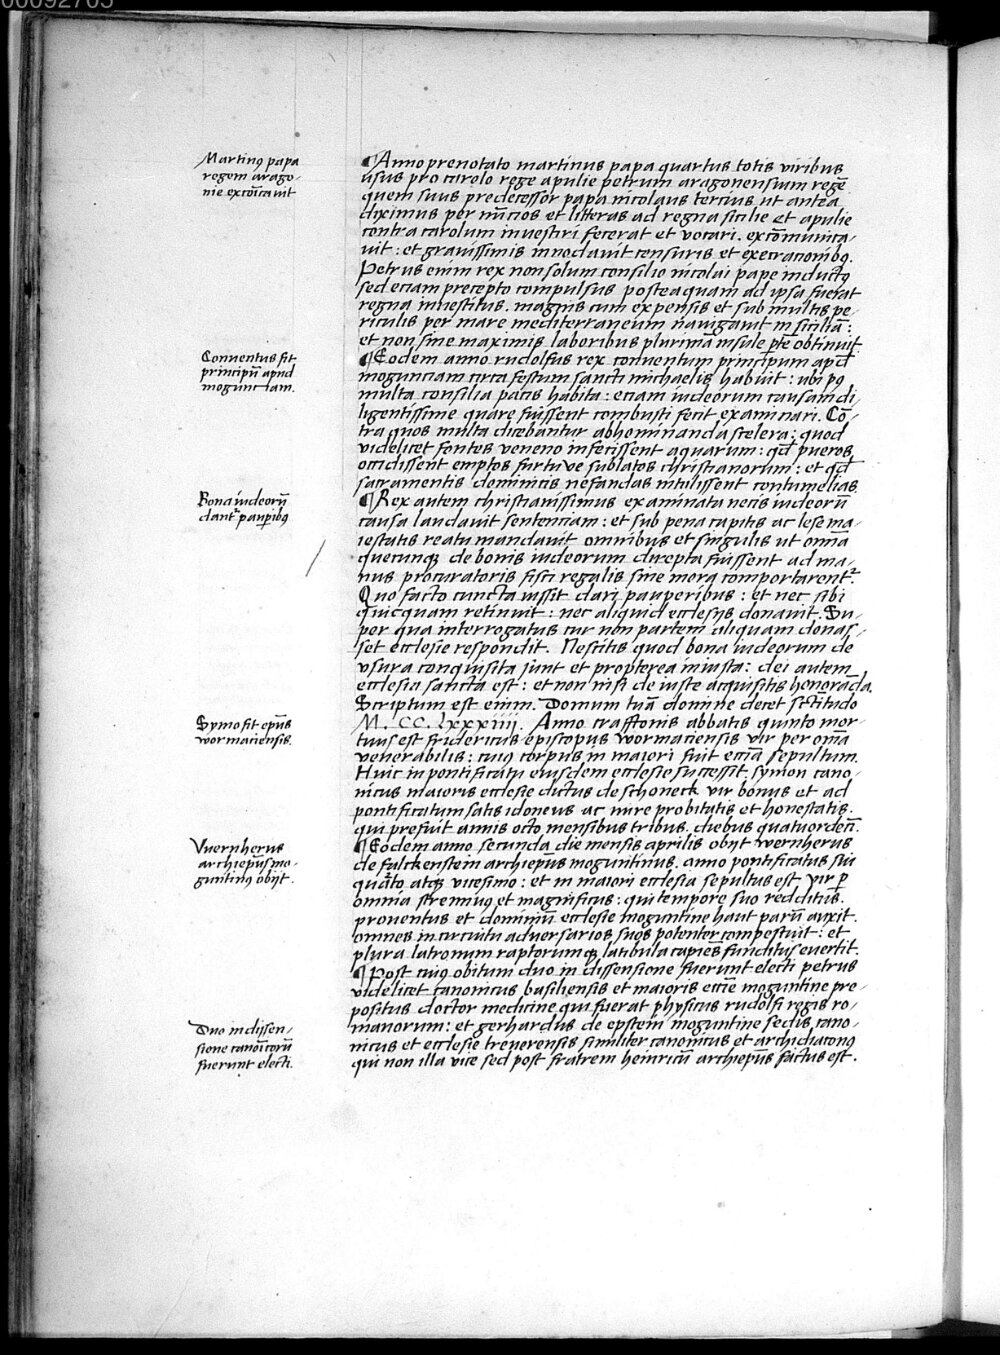 00092705
Martinꝯ papa
regem arago-
nie excōicauit
¶Anno prenotato martinus papa quartus totis viribus
usus pro carolo rege apulie petrum aragonensium regē
quem suus predecessor papa nicolaus tercius ut antea
diximus per nūcios et litteras ad regna sicilie et apulie
contra carolum inuestiri fecerat et vocari. excōmunica-
uit: et grauissimis innodauit censuris et execracionibꝯ.
Petrus enim rex non solum consilio nicolai pape inductꝯ
sed eciam precepto compulsus postea quam ad ipsa fuerat
regna inuestitus. magnis cum expensis et sub multis pe-
riculis per mare mediterraneum nauigauit in siciliā:
et non sine maximis laboribus plurimā insule ptē obtinuit
Conuentus fit
principū apud
mogunciam.
¶Eodem anno rudolfus rex conuentum principum apd
mogunciam circa festum sancti michaelis habuit: ubi pꝯ
multa consilia pacis habita: eciam iudeorum causam di-
ligentissime quare fuissent combusti fecit examinari. Cō-
tra quos multa dicebantur abhominanda scelera: quod
videlicet fontes veneno infecissent aquarum: qd pueros
occidissent emptos furtiue sublatos christianorum: et qd
sacramentis dominicis nefandas intulissent contumelias
Bona iudeorū
dantr pauꝑibꝯ
¶Rex autem christianissimus examinata necis iudeorū
causa laudauit sentenciam: et sub pena capitis ac lese ma-
iestatis reatu mandauit omnibus et singulis ut omīa
quecunqꝫ de bonis iudeorum direpta fuissent ad ma-
nus procuratoris fisci regalis sine mora comportarentr
Quo facto cuncta iussit dari pauperibus: et nec sibi
quicquam retinuit: nec aliquid ecclesijs donauit. Su-
per qua interrogatus cur non partem aliquam donas-
set ecclesie respondit. Nescitis quod bona iudeorum de
vsura conquisita sunt et propterea iniusta: dei autem
ecclesia sancta est: et non nisi de iuste acquisitis honorāda.
Scriptum est enim. Domum tuā domine decet sctitudo
Symo fit epūs
wormaciensis.
M. CC. lxxxiiii. Anno crafftonis abbatis quinto mor-
tuus est fridericus episcopus wormaciensis vir per omīa
venerabilis: cuiꝯ corpus in maiori fuit eccīa sepultum.
Huic in pontificatu eiusdem ecclesie successit symon cano-
nicus maioris ecclesie dictus de schoneck vir bonus et ad
pontificatum satis idoneus ac mire probitatis et honestatis.
qui prefuit annis octo mensibus tribus. diebus quatuordecī.
Vuernherus
archiepūs mo-
guntinꝯ obijt.
¶Eodem anno secunda die mensis aprilis obijt wernherus
de falckenstein archiepūs moguntinus. anno pontificatus sui
quarto atqꝫ vicesimo: et in maiori ecclesia sepultus est vir ꝑ
omnia strennuꝯ et magnificus: qui tempore suo redditus.
prouentus et dominiū ecclesie moguntine haut parū auxit.
omnes in circuitu aduersarios suos potenter compescuit: et
plura latronum raptorumqꝫ latibula capiēs funditus euertit.
¶Post cuiꝯ obitum duo in dissensione fuerunt electi petrus
videlicet canonicus basiliensis et maioris eccīe moguntine pre-
positus doctor medicine qui fuerat physicus rudolfi regis ro-
Duo in dissen-
sione canoīcorū
fuerunt electi.
manorum: et gerhardus de epstein moguntine sedis cano-
nicus et ecclesie treuerensis similiter canonicus et archidiaconꝯ
qui non illa vice sed post fratrem heinricū archiepūs factus est.